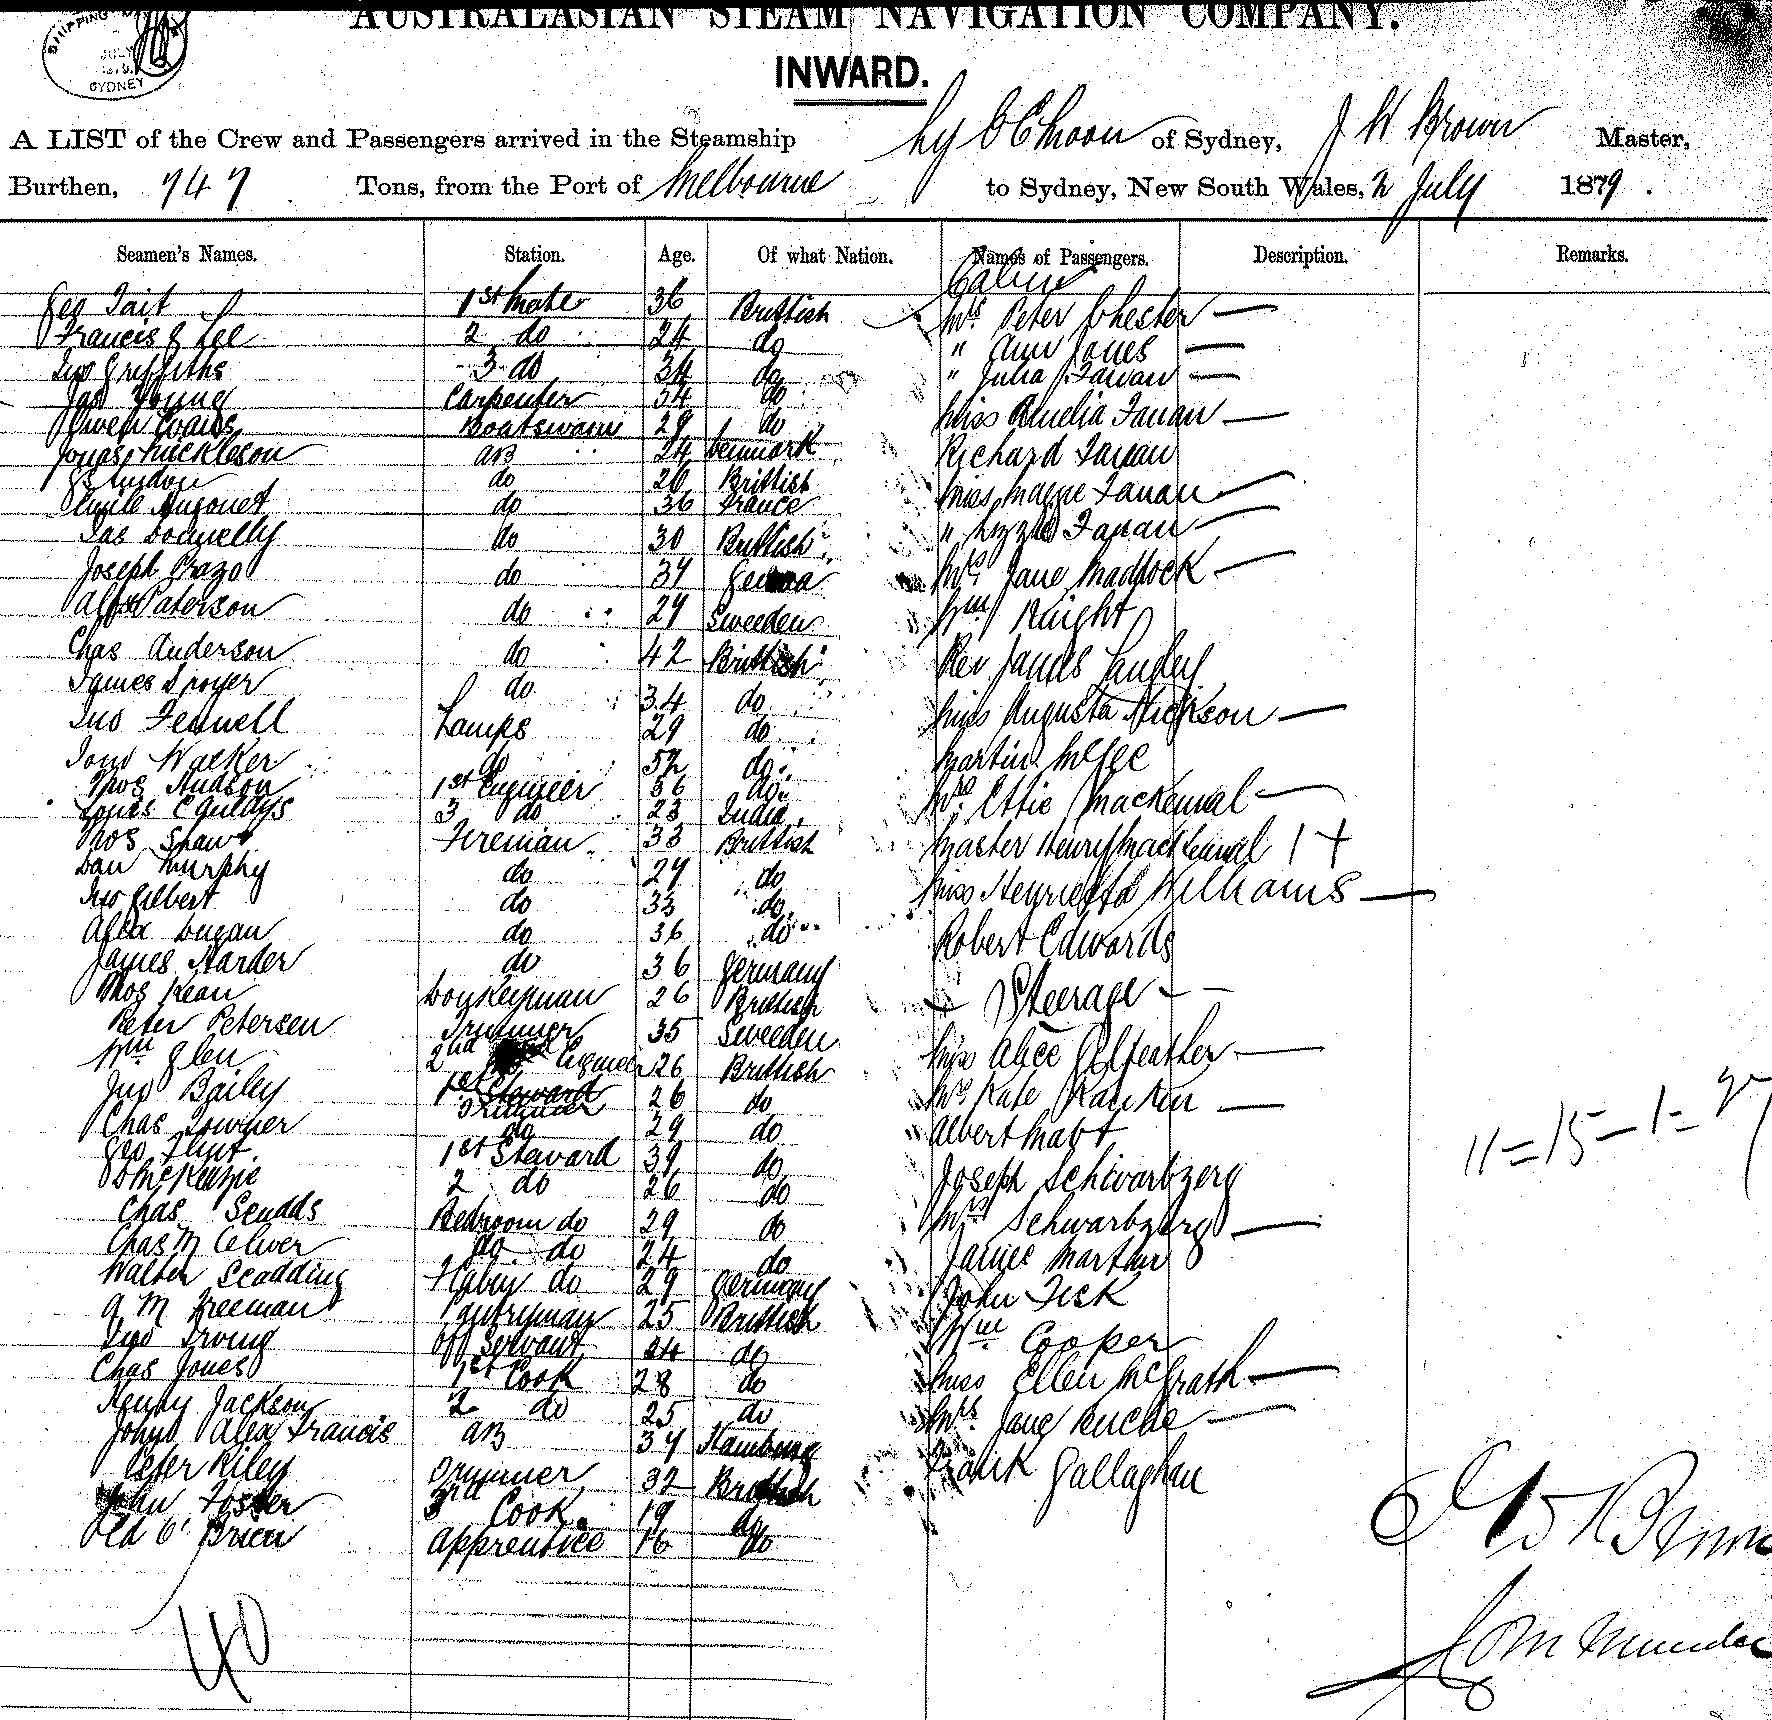 AUSTRALASIAN STEAM NAVIGATION COMPANY.
SHIPPING
SYDNEY
INWARD.
A LIST of the Crew and Passengers arrived in the Steamship Ly EE Moon of Sydney, J W Brown Master,
Burthen, 747 Tons, from the Port of Melbourne to Sydney, New South Wales, 2 July 1879.
Seamen's Names. Station. Age. Of what Nation. Names of Passengers. Description. Remarks.
Cabin
Geo Tait 1st Mate 36 Brittish Mrs Peter Chester —
Francis J Lee 2 do 24 do " Ann Jones —
Jno Griffiths 3 do 34 do " Julia Fanan —
Jas Young Carpenter 34 do Miss Amelia Fanan —
Owen Evans Boatswain 29 do
Jonas AB 24 Denmark Richard Fanan
do 26 Brittish Miss Maggie Fanan —
do 36 France " Lizzie Fanan —
Jas Donnelly do 30 Brittish
Joseph do 37 Genoa Mrs Jane Maddock —
Alfd Paterson do 27 Sweeden Wm Knight
Chas Anderson do 42 Brittish Rev James Langley
James do 34 do Miss Augusta Hickson —
Jno Fennell Lamps 29 do Martin McGee
John Walker do 52 do
Thos Hudson 1st Engineer 36 do Mrs Ettie Mackennal —
3 do 23 India
Thos Shaw Fireman 33 Brittish Master Henry Mackennal 1 +
Dan Murphy do 27 do Miss Henrietta Williams —
Jno Gilbert do 33 do
Alex Dugan do 36 do Robert Edwards
James Harder do 36 Germany
Thos Kean Donkeyman 26 Brittish Steerage
Peter Petersen Trimmer 35 Sweeden
Wm Glen 2nd Engineer 26 Brittish Miss Alice Gilfeather —
Jno Bailey 1st Steward Trimmer 26 do Mrs Kate Rankin —
Chas Towner do 29 do Albert Mabt
Geo Flint 1st Steward 39 do Joseph Schwartzerg
D McKenzie 2 do 26 do
Chas Scudds Bedroom do 29 do Mrs Schwartzerg —
Chas M Oliver do do 24 do James Martin
Walter Scadding do 29 Germany John Fisk
A M Freeman Pantryman 25 Brittish Wm Cooper
Jno Irving Off Servant 24 do
Chas Jones 1st Cook 28 do Miss Ellen McGrath —
Henry Jackson 2 do 25 do Mrs Jane —
John Alex Francis AB 37 Hamburg
Peter Riley Trimmer 32 Brittish Frank Gallaghan
John Foster 3rd Cook 19 do
Edd O'Brien Apprentice 16 do
11 = 15 — 1 = 27
40